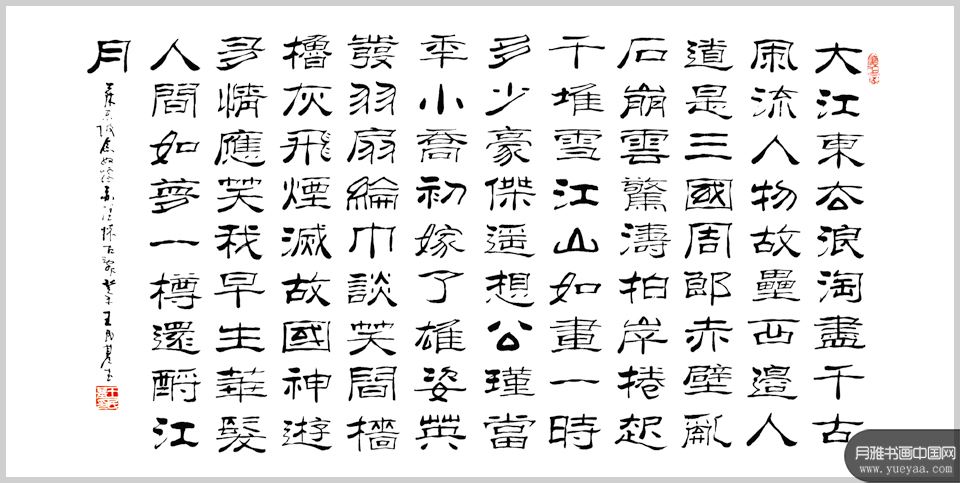 大江東去浪淘盡千古
風流人物故壘西邊人
道是三國周郎赤壁亂
石崩雲驚濤拍岸捲起
千堆雪江山如畫一時
多少豪傑遥想公瑾當
年小喬初嫁了雄姿英
發羽扇綸巾談笑間檣
櫓灰飛煙滅故國神遊
多情應笑我早生華髮
人間如夢一樽還酹江
月
蘇東坡念奴嬌赤壁懷古
月雅书画中国网
www.yueyaa.com